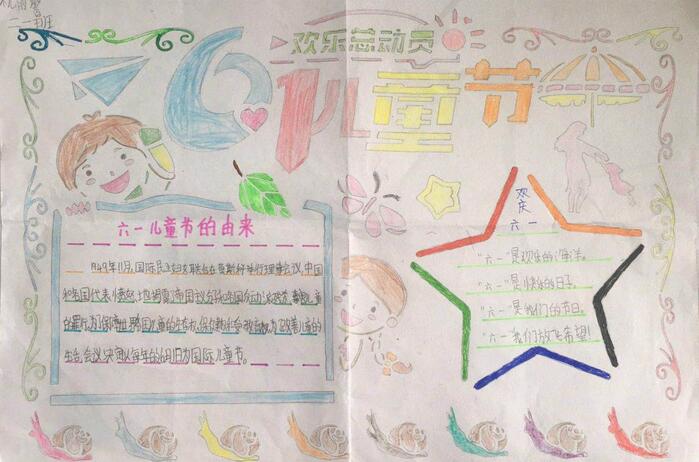 二一班
欢乐总动员
6
1儿童节
六一儿童节的由来
1949年11月,国际民主妇女联合会在莫斯科举行理事会议,中国
和各国代表愤怒地揭露了帝国主义分子和各国反动派残杀、毒害儿童
的罪行。为了保障世界各国儿童的生存权、保健权和受教育权,为了改善儿童的
生活,会议决定以每年的6月1日为国际儿童节。
欢庆
六一
"六一"是欢乐的海洋。
"六一"是快乐的日子,
"六一"是我们的节日。
"六一"我们放飞希望!